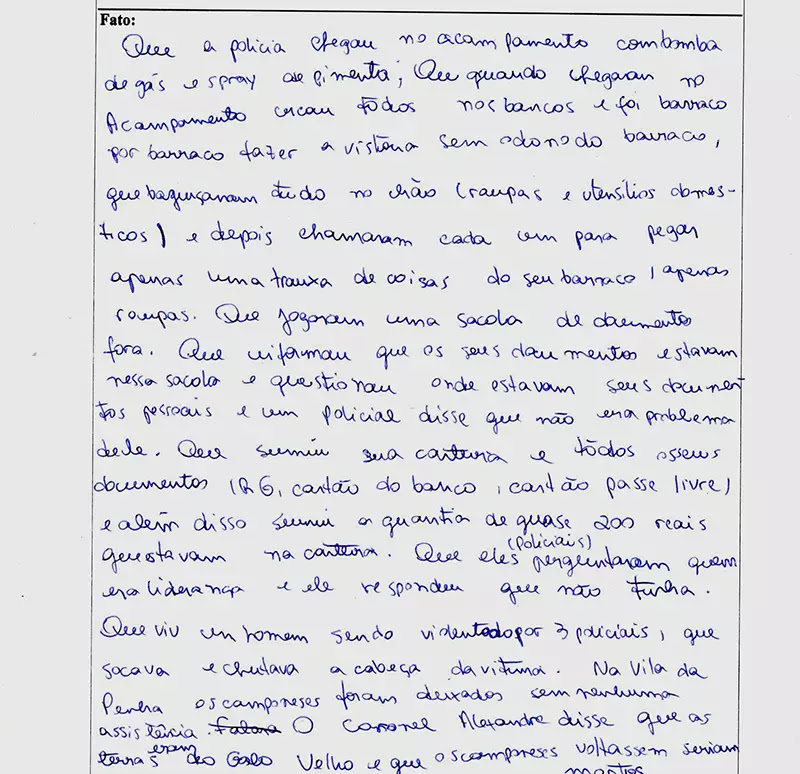 Fato:
Que a policia chegou no acampamento com bomba
de gás e spray de pimenta; Que quando chegaram no
Acampamento cercou todos nos bancos e foi barraco
por barraco fazer a vistoria sem o dono do barraco,
que bagunçaram tudo no chão (roupas e utensílios domés-
ticos) e depois chamaram cada um para pegar
apenas uma trouxa de coisas do seu barraco, apenas
roupas. Que jogaram uma sacola de documentos
fora. Que informou que os seus documentos estavam
nessa sacola e questionou onde estavam seus documen
tos pessoais e um policial disse que não era problema
dele. Que sumiu sua carteira e todos os seus
documentos (RG, cartão do banco, cartão passe livre)
e além disso sumiu a quantia de quase 200 reais
que estavam na carteira. Que eles (policiais) perguntaram quem
era liderança e ele respondeu que não tinha.
Que viu um homem sendo violentado por 3 policiais, que
socava e chutava a cabeça da vitima. Na Vila da
Penha os camponeses foram deixados sem nenhuma
assistência. O Coronel Alexandre disse que as
terras eram do Galo Velho e que os camponeses voltassem seriam
mortos